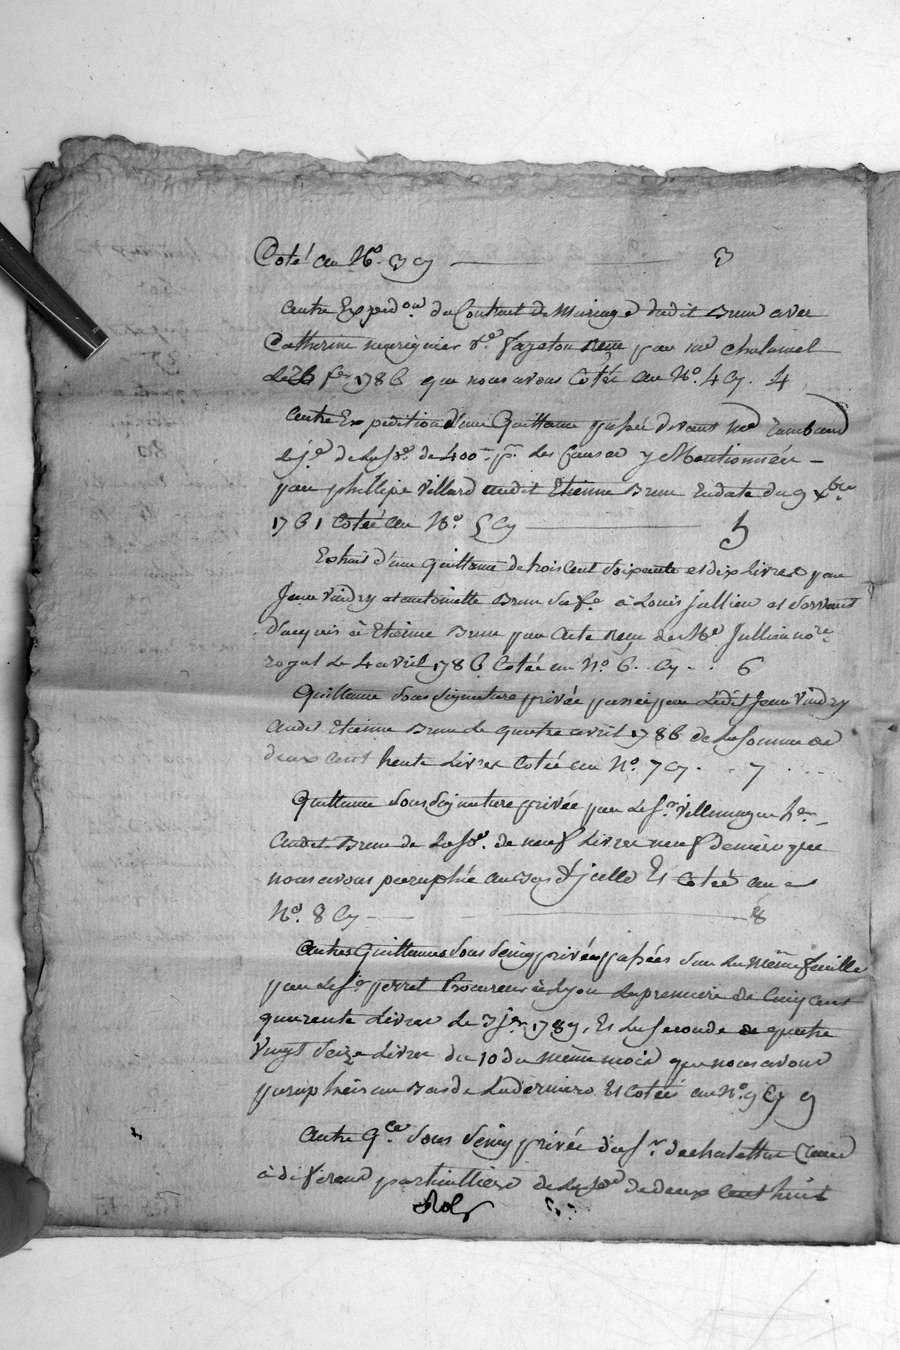 Coté au No. 3 Cy ——— 3
autre Expedon. du Contract de Mariage dudit Brun avec
Catherine recue par me chalamel
Le 26 fer. 1786 que nous avons Cotté au No. 4 Cy. 4
autre Expedition d'une Quittance passée devant me
de La so. de 400 Les causes y Mentionnées —
par phillipe Villard audit Etienne Brun En date du 9 xbre
1761 Cotée au No. 5 Cy ——— 5
Extrait d'une quittance de trois Cent Soixante et dix Livres par
Jean Vindry et antoinette Brun sa fe. à Louis Jullien et servant
d'acquis à Etienne Brun par acte reçu de Me Jullien nore.
royal Le 4 avril 1786 Cotée au No. 6. Cy. . 6
Quittance Sous Signature privée passée par Ledit Jean Vindry
audit Etienne Brun Le quatre avril 1786 de La somme de
deux Cent trente Livres Cotée au No. 7 Cy . . 7
Quittance Sous Signature privée par Le sr. Villemagne
audit Brun de La so. de neuf Livres neuf deniers que
nous avons paraphée au bas d'jcelle Et Cotée au
No. 8 Cy ——— 8
autres Quittances Sous Seing privées passées sur La même feuille
par Le sr. perret Procureur à Lyon La premiere de Cinq Cent
quarente Livres Le 3 jer. 1789, Et La seconde de quatre
Vingt Seize Livres du 10 du même mois que nous avons
paraphées au Bas de La derniere Et Cotée au No. 9 Cy 9
autre qce. Sous Seing privée du sr. dechatellus
à diferend particulliers de La so. de deux Cent huit